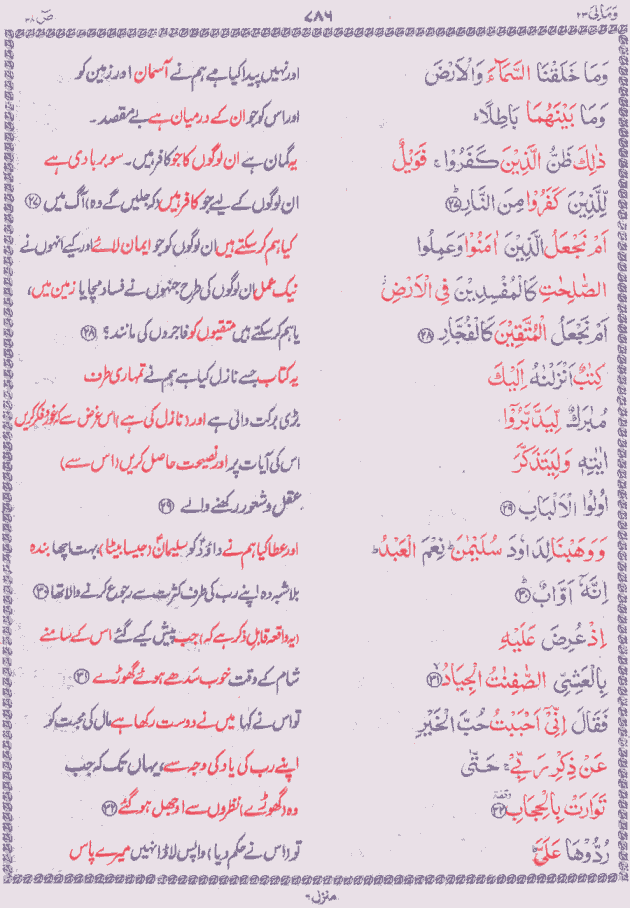 وَمَالِیَ ۲۳
۷۸۶
صٓ ۳۸
وَمَا خَلَقْنَا السَّمَآءَ وَالْاَرْضَ
اور نہیں پیدا کیا ہے ہم نے آسمان اور زمین کو
وَمَا بَيْنَهُمَا بَاطِلًا ؕ
اور اس کو جو ان کے درمیان ہے بے مقصد۔
ذٰلِكَ ظَنُّ الَّذِيْنَ كَفَرُوْا ۚ فَوَيْلٌ
یہ گمان ہے ان لوگوں کا جو کافر ہیں۔ سو بربادی ہے
لِّلَّذِيْنَ كَفَرُوْا مِنَ النَّارِ ؕ ﴿۲۷﴾
ان لوگوں کے لیے جو کافر ہیں (کہ جلیں گے وہ) آگ میں ﴿۲۷﴾
اَمْ نَجْعَلُ الَّذِيْنَ اٰمَنُوْا وَعَمِلُوا
کیا ہم کر سکتے ہیں ان لوگوں کو جو ایمان لائے اور کیے انہوں نے
الصّٰلِحٰتِ كَالْمُفْسِدِيْنَ فِي الْاَرْضِ ۫
نیک عمل ان لوگوں کی طرح جنہوں نے فساد مچایا زمین میں،
اَمْ نَجْعَلُ الْمُتَّقِيْنَ كَالْفُجَّارِ ﴿۲۸﴾
یا ہم کر سکتے ہیں متقیوں کو فاجروں کی مانند؟ ﴿۲۸﴾
كِتٰبٌ اَنْزَلْنٰهُ اِلَيْكَ
یہ کتاب جسے نازل کیا ہے ہم نے تمہاری طرف
مُبٰرَكٌ لِّيَدَّبَّرُوْٓا
بڑی برکت والی ہے اور (نازل کی ہے) اس غرض سے کہ غور و فکر کریں
اٰيٰتِهٖ وَلِيَتَذَكَّرَ
اس کی آیات پر اور نصیحت حاصل کریں (اس سے)
اُولُوا الْاَلْبَابِ ﴿۲۹﴾
عقل و شعور رکھنے والے ﴿۲۹﴾
وَوَهَبْنَا لِدَاوٗدَ سُلَيْمٰنَ ؕ نِعْمَ الْعَبْدُ ؕ
اور عطا کیا ہم نے داؤدؑ کو سلیمانؑ (جیسا بیٹا) بہت اچھا بندہ
اِنَّهٗۤ اَوَّابٌ ؕ ﴿۳۰﴾
بلاشبہ وہ اپنے رب کی طرف کثرت سے رجوع کرنے والا تھا ﴿۳۰﴾
اِذْ عُرِضَ عَلَيْهِ
(یہ واقعہ قابلِ ذکر ہے کہ) جب پیش کیے گئے اس کے سامنے
بِالْعَشِيِّ الصّٰفِنٰتُ الْجِيَادُ ﴿۳۱﴾
شام کے وقت خوب سدھے ہوئے گھوڑے ﴿۳۱﴾
فَقَالَ اِنِّيْٓ اَحْبَبْتُ حُبَّ الْخَيْرِ
تو اس نے کہا میں نے دوست رکھا ہے مال کی محبت کو
عَنْ ذِكْرِ رَبِّيْ ۚ حَتّٰى
اپنے رب کی یاد کی وجہ سے، یہاں تک کہ جب
تَوَارَتْ بِالْحِجَابِ ﴿۳۲﴾
وہ (گھوڑے) نظروں سے اوجھل ہو گئے ﴿۳۲﴾
رُدُّوْهَا عَلَيَّ ؕ
تو (اس نے حکم دیا) واپس لاؤ انہیں میرے پاس
منزل ۶